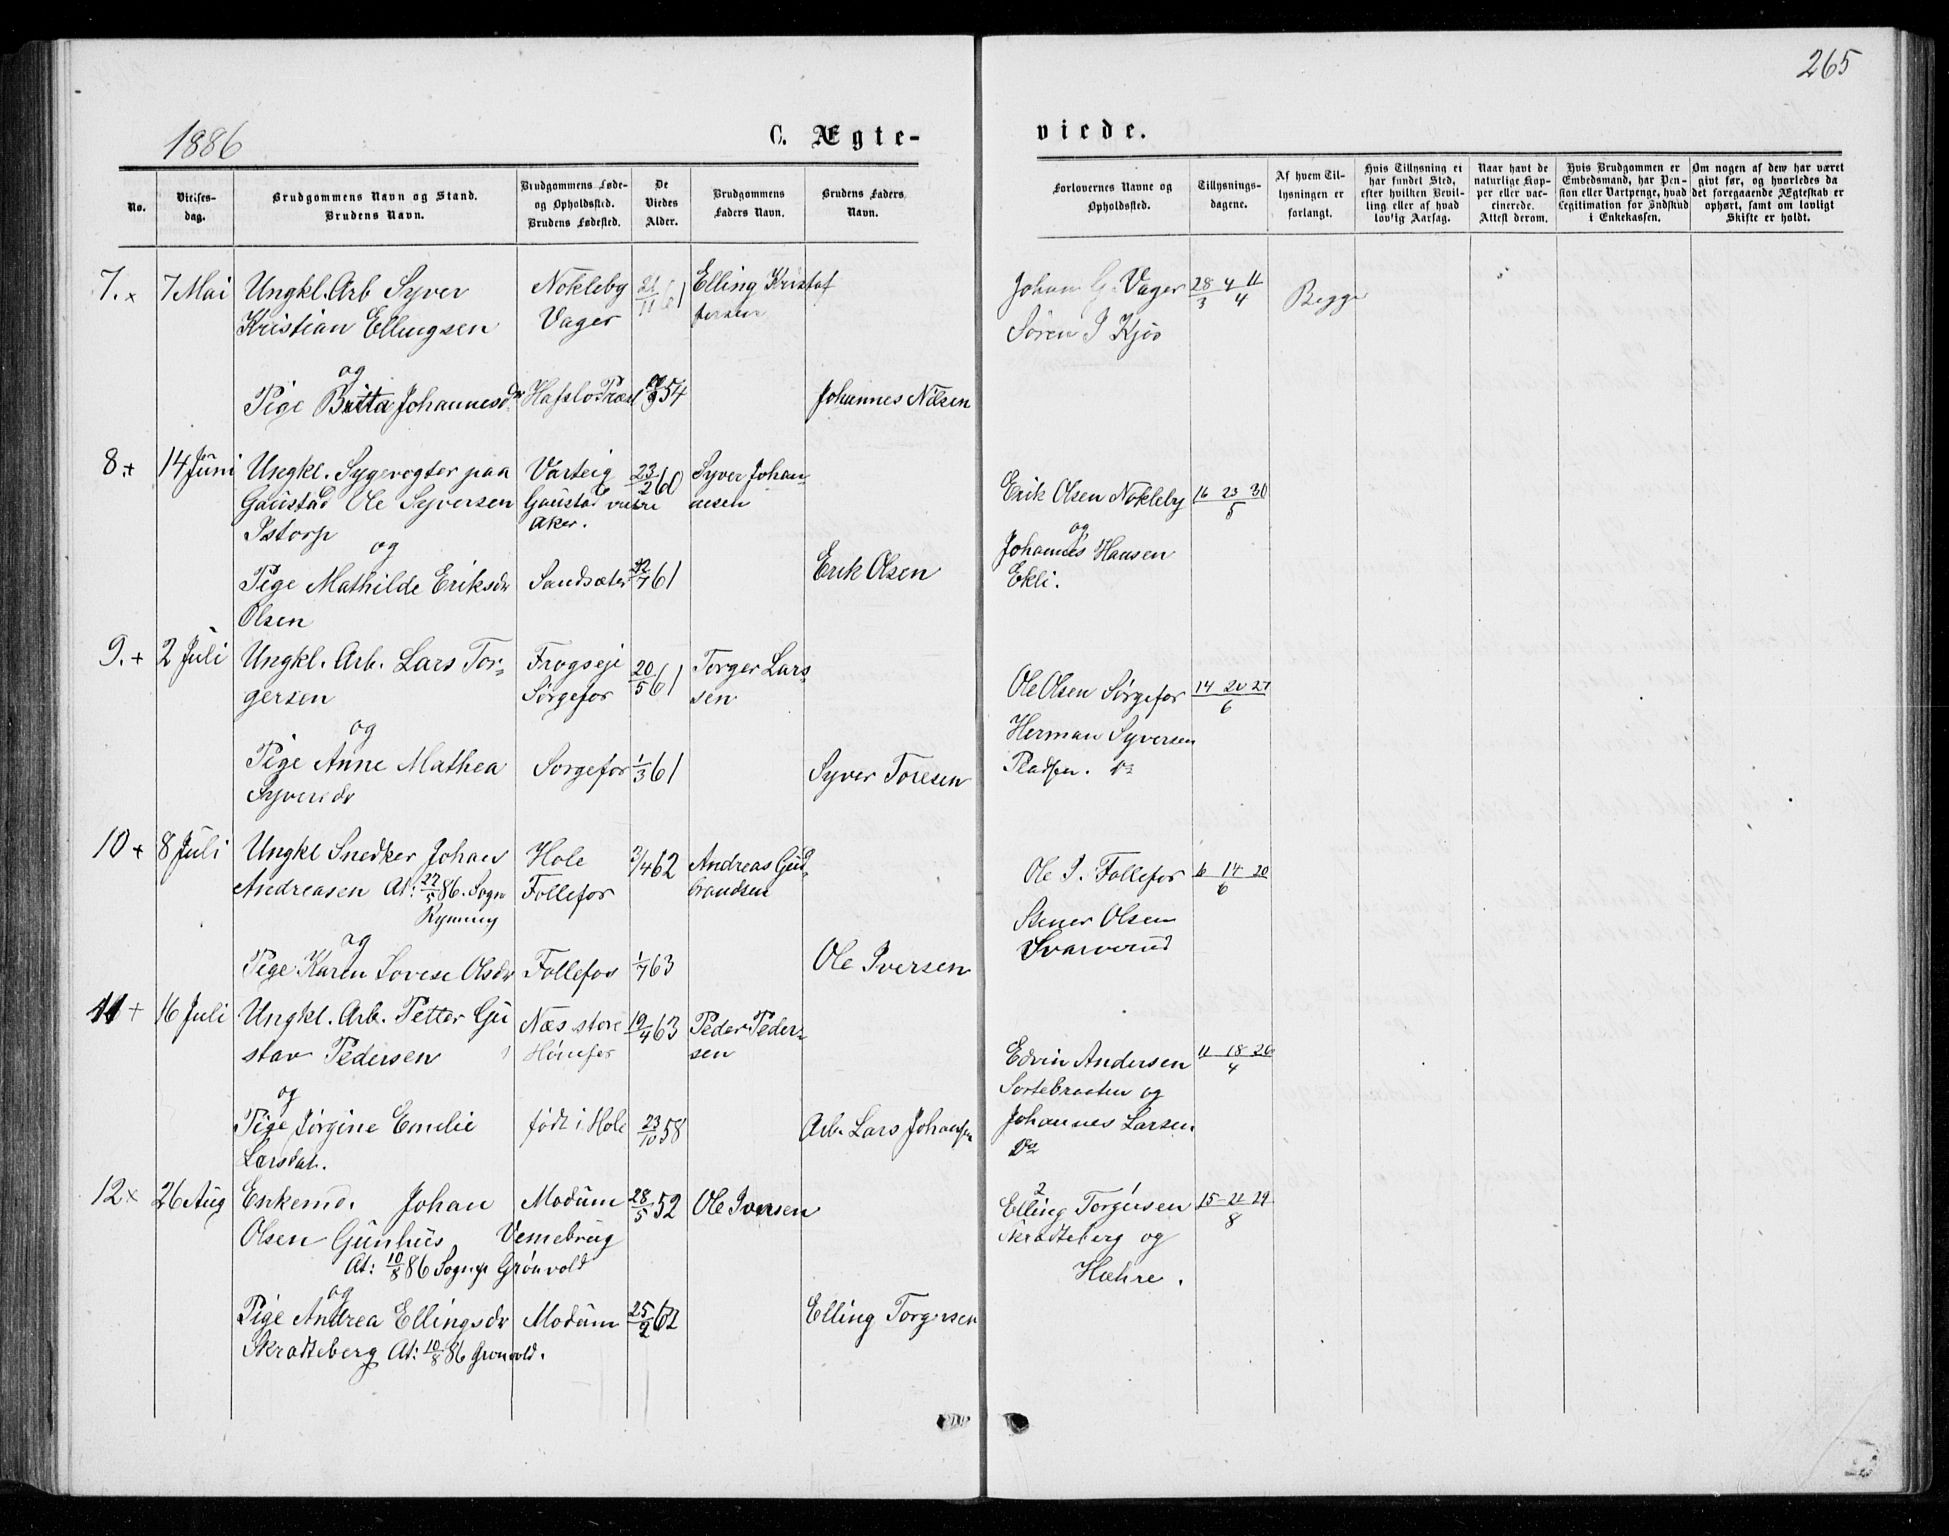 265
1886
C. Ægte-
viede.
No.
Vielses-
dag.
Brudgommens Navn og Stand.
Brudens Navn.
Brudgommens Føde-
og Opholdssted.
Brudens Fødested.
De
Viedes
Alder.
Brudgommens
Faders Navn.
Brudens Faders
Navn.
Forlovernes Navne og
Opholdssted.
Tillysnings-
dagene.
Af hvem Til-
lysningen er
forlangt.
Hvis Tillysning ei
har fundet Sted,
efter hvilken Bevil-
ling eller af hvad
lovlig Aarsag.
Naar havt de
naturlige Kop-
per eller vac-
cinerede.
Attest derom.
Hvis Brudgommen er
Embedsmand, har Pen-
sion eller Vartpenge, hvad
Legitimation for Indskud
i Enkekassen.
Om nogen af dem har været
givt før, og hvorledes da
det foregaaende Ægteskab er
ophørt, samt om lovligt
Skifte er holdt.
7. x 7 Mai Ungkl. Arb Syver
Kristian Ellingsen
Nokleby
Vager
Elling Kristof
fersen
Johan G. Vager
Søren J Kjøs
28 4 11
3 4
Begge
og
Pige Britta Johannesdr
Hafslo
54
Johannes Nilsen
8. + 14 Juni Ungkl. Sygevogter paa
Gaustad Ole Syversen
Istorp
Varteig
Gaustad vestre
Aker.
23/2 60
Syver Johan-
nesen
Erik Olsen Nokleby
og
Johannes Hansen
Ekli.
16 23 30
5
og
Pige Mathilde Eriksdr
Olsen
Sandsæter
61
Erik Olsen
9. + 2 Juli Ungkl. Arb. Lars Tor-
gersen
Frogseje
Sørgefos
20/5 61
Torger Lars-
sen
Ole Olsen Sørgefos
Herman Syversen
Pladsen. Do
14 20 27
6
og
Pige Anne Mathea
Syversdr
Sorgefos
1/3 61
Syver Toresen
10 + 8 Juli Ungkl Snedker Johan
Andreasen At: 27/5 86. Sogn
Hole
Follefos
3/4 62
Andreas Gud-
brandsen
Ole I. Follefos
Stener Olsen
Svarverud
6 14 20
6
og
Pige Karen Lovise Olsdr
Follefos
1/7 63
Ole Iversen
11 + 16 Juli Ungkl. Arb. Petter Gu
stav Pedersen
Næs store
Hønefos
19/4 63
Peder Peder-
sen
Edvin Andersen
Sortebraaten og
Johannes Larsen
Do
11 18 26
4
og
Pige Jørgine Emelie
Larsdat.
født i Hole
23/10 58
Arb. Lars Johansen
12 x 26 Aug Enkemd. Johan
Olsen Gunhus
At: 10/8 86 Sognepr Grønvold
Modum
Vemebrug
28/5 52
Ole Iversen
Elling Torgersen
Skradteberg og
Hæhre.
15 22 29
8
og
Pige Andrea Ellingsdr
Skradteberg At: 10/8 86 Gronvold.
Modum
25/2 62
Elling Torgersen